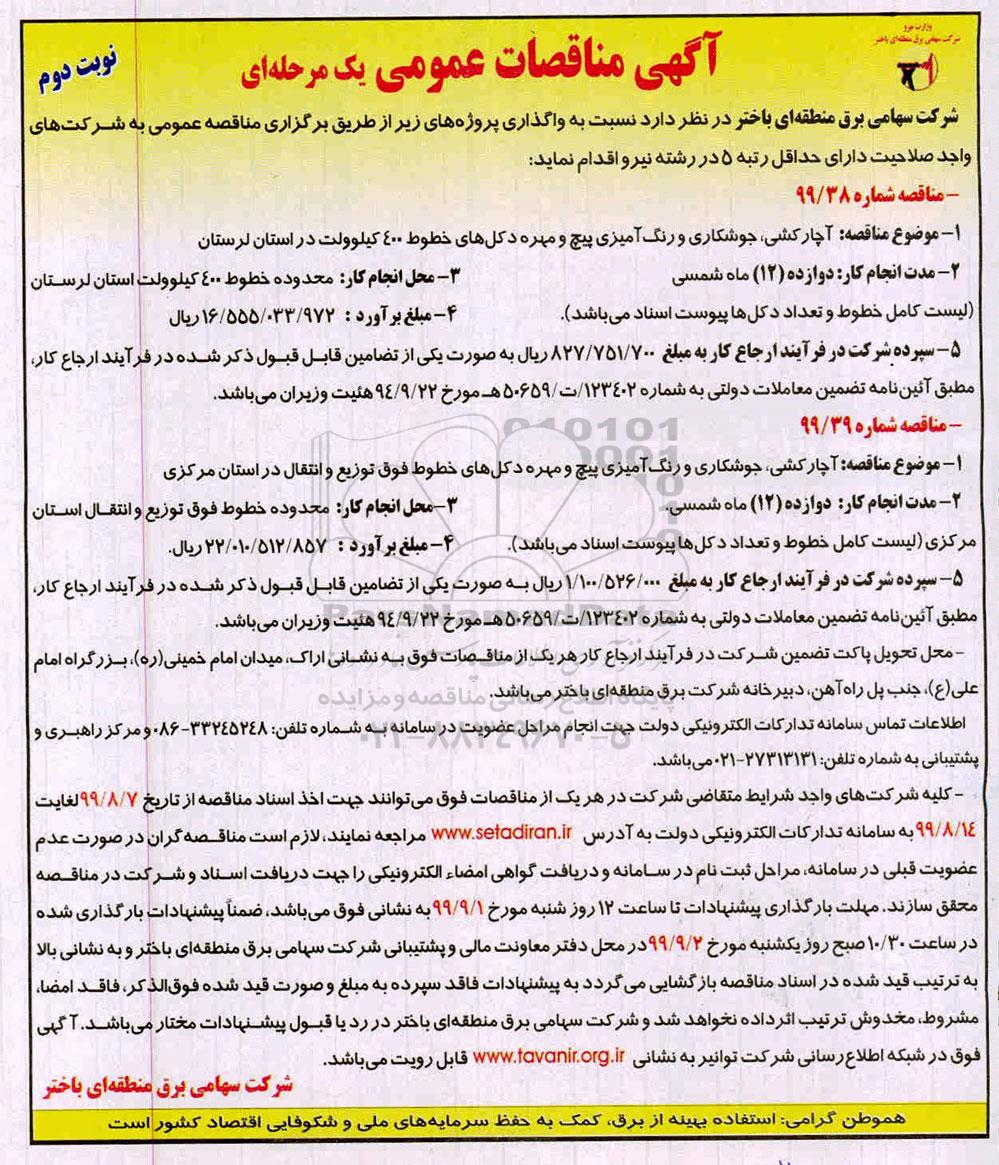 وزارت نیرو
شرکت سهامی برق منطقه‌ای باختر
آگهی مناقصات عمومی یک مرحله‌ای
نوبت دوم
شرکت سهامی برق منطقه‌ای باختر در نظر دارد نسبت به واگذاری پروژه‌های زیر از طریق برگزاری مناقصه عمومی به شرکت‌های
واجد صلاحیت دارای حداقل رتبه ۵ در رشته نیرو اقدام نماید:
- مناقصه شماره ۹۹/۳۸
۱- موضوع مناقصه: آچارکشی، جوشکاری و رنگ‌آمیزی پیچ و مهره دکل‌های خطوط ۴۰۰ کیلوولت در استان لرستان
۲- مدت انجام کار: دوازده (۱۲) ماه شمسی ۳- محل انجام کار: محدوده خطوط ۴۰۰ کیلوولت استان لرستان
(لیست کامل خطوط و تعداد دکل‌ها پیوست اسناد می‌باشد). ۴- مبلغ برآورد : ۱۶/۵۵۵/۰۳۳/۹۷۲ ریال
۵- سپرده شرکت در فرآیند ارجاع کار به مبلغ ۸۲۷/۷۵۱/۷۰۰ ریال به صورت یکی از تضامین قابل قبول ذکر شده در فرآیند ارجاع کار،
مطبق آئین‌نامه تضمین معاملات دولتی به شماره ۱۲۳۴۰۲/ت/۵۰۶۵۹ هـ مورخ ۹۴/۹/۲۲ هئیت وزیران می‌باشد.
- مناقصه شماره ۹۹/۳۹
۱- موضوع مناقصه: آچارکشی، جوشکاری و رنگ‌آمیزی پیچ و مهره دکل‌های خطوط فوق توزیع و انتقال در استان مرکزی
۲- مدت انجام کار: دوازده (۱۲) ماه شمسی. ۳- محل انجام کار: محدوده خطوط فوق توزیع و انتقال استان
مرکزی (لیست کامل خطوط و تعداد دکل‌ها پیوست اسناد می‌باشد). ۴- مبلغ برآورد : ۲۲/۰۱۰/۵۱۲/۸۵۷ ریال.
۵- سپرده شرکت در فرآیند ارجاع کار به مبلغ ۱/۱۰۰/۵۲۶/۰۰۰ ریال به صورت یکی از تضامین قابل قبول ذکر شده در فرآیند ارجاع کار،
مطبق آئین‌نامه تضمین معاملات دولتی به شماره ۱۲۳۴۰۲/ت/۵۰۶۵۹ هـ مورخ ۹۴/۹/۲۲ هئیت وزیران می‌باشد.
- محل تحویل پاکت تضمین شرکت در فرآیند ارجاع کار هر یک از مناقصات فوق به نشانی اراک، میدان امام خمینی(ره)، بزرگراه امام
علی(ع)، جنب پل راه‌آهن، دبیرخانه شرکت برق منطقه‌ای باختر می‌باشد.
پایگاه اطلاع رسانی مناقصه و مزایده
اطلاعات تماس سامانه تدارکات الکترونیکی دولت جهت انجام مراحل عضویت در سامانه به شماره تلفن: ۳۳۲۴۵۲۴۸-۰۸۶ و مرکز راهبری و
۰۲۱-۸۸۳۴۹۶۷۰-۵
پشتیبانی به شماره تلفن: ۲۷۳۱۳۱۳۱-۰۲۱ می‌باشد.
- کلیه شرکت‌های واجد شرایط متقاضی شرکت در هر یک از مناقصات فوق می‌توانند جهت اخذ اسناد مناقصه از تاریخ ۹۹/۸/۷ لغایت
۹۹/۸/۱۴ به سامانه تدارکات الکترونیکی دولت به آدرس www.setadiran.ir مراجعه نمایند، لازم است مناقصه‌گران در صورت عدم
عضویت قبلی در سامانه، مراحل ثبت نام در سامانه و دریافت گواهی امضاء الکترونیکی را جهت دریافت اسناد و شرکت در مناقصه
محقق سازند. مهلت بارگذاری پیشنهادات تا ساعت ۱۲ روز شنبه مورخ ۹۹/۹/۱ به نشانی فوق می‌باشد، ضمناً پیشنهادات بارگذاری شده
در ساعت ۱۰/۳۰ صبح روز یکشنبه مورخ ۹۹/۹/۲ در محل دفتر معاونت مالی و پشتیبانی شرکت سهامی برق منطقه‌ای باختر و به نشانی بالا
به ترتیب قید شده در اسناد مناقصه بازگشایی می‌گردد به پیشنهادات فاقد سپرده به مبلغ و صورت قید شده فوق‌الذکر، فاقد امضا،
مشروط، مخدوش ترتیب اثر داده نخواهد شد و شرکت سهامی برق منطقه‌ای باختر در رد یا قبول پیشنهادات مختار می‌باشد. آگهی
فوق در شبکه اطلاع‌رسانی شرکت توانیر به نشانی www.tavanir.org.ir قابل رویت می‌باشد.
شرکت سهامی برق منطقه‌ای باختر
هموطن گرامی: استفاده بهینه از برق، کمک به حفظ سرمایه‌های ملی و شکوفایی اقتصاد کشور است